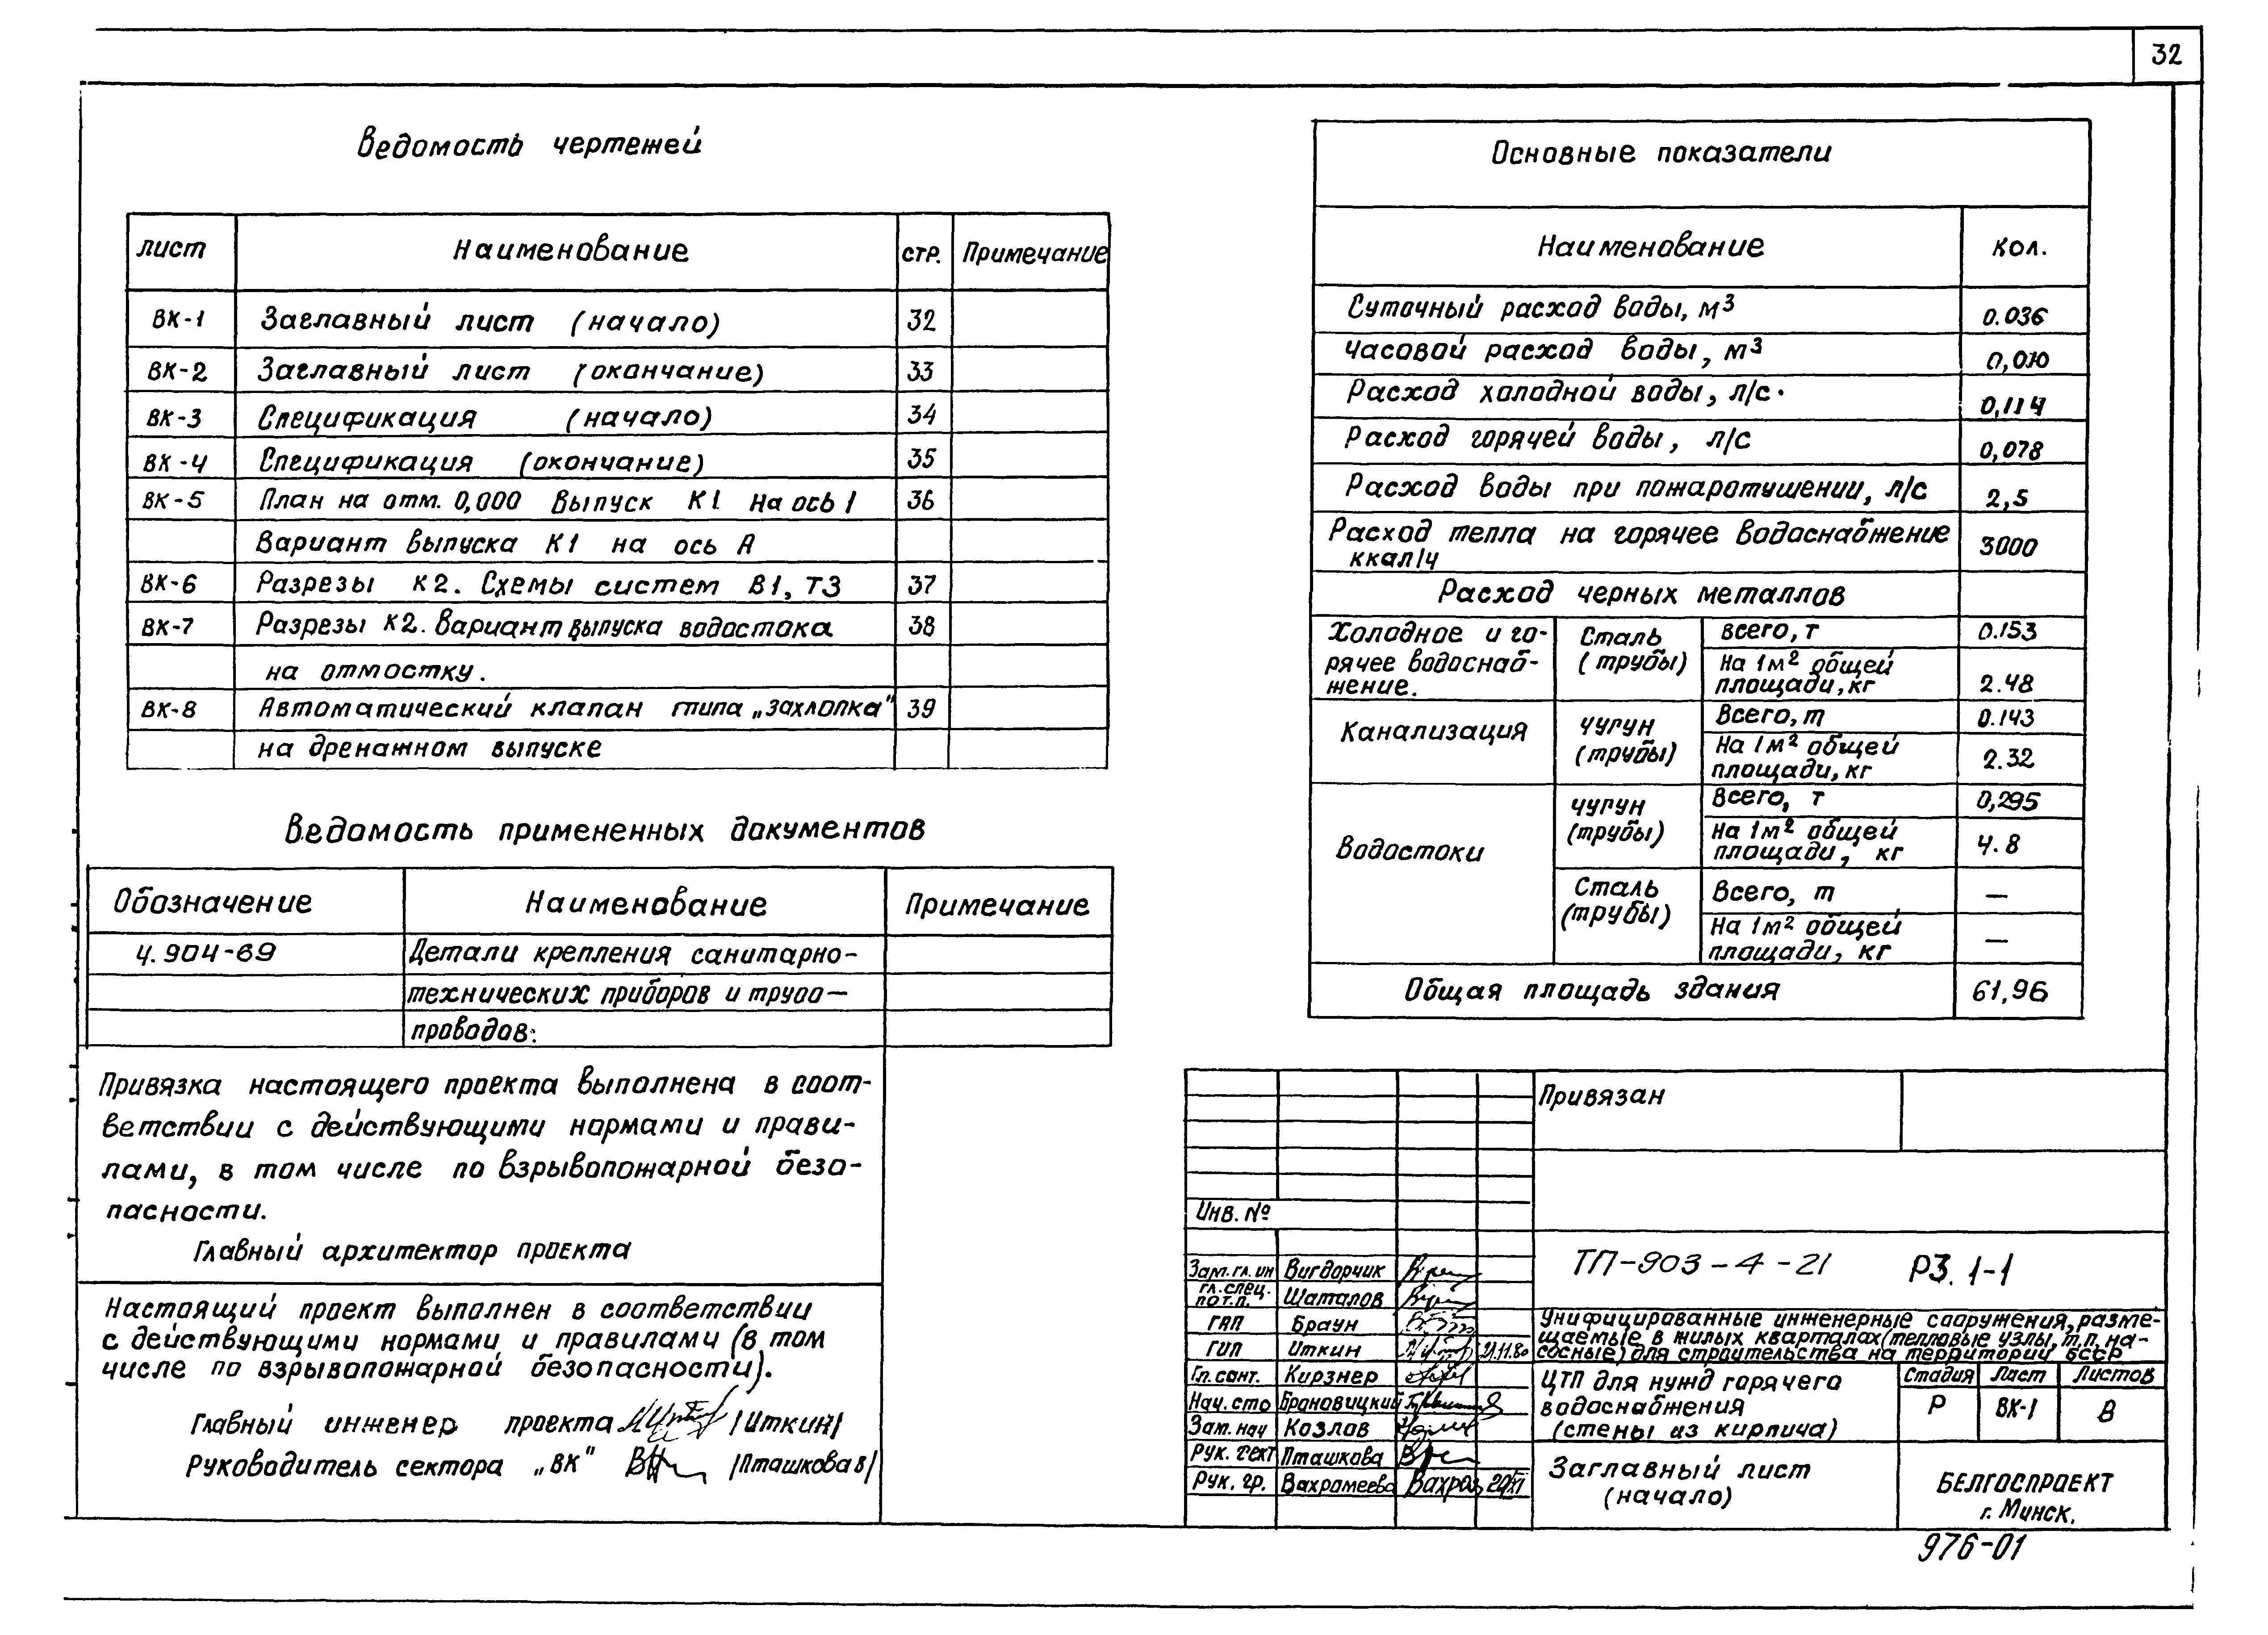 32
Ведомость чертежей
лист Наименование стр. Примечание
ВК-1 Заглавный лист (начало) 32
ВК-2 Заглавный лист (окончание) 33
ВК-3 Спецификация (начало) 34
ВК-4 Спецификация (окончание) 35
ВК-5 План на отм. 0,000 Выпуск К1 на ось 1 36
Вариант выпуска К1 на ось А
ВК-6 Разрезы К2. Схемы систем В1, Т3 37
ВК-7 Разрезы К2. Вариант выпуска водостока 38
на отмостку.
ВК-8 Автоматический клапан типа „Захлопка" 39
на дренажном выпуске
Ведомость примененных документов
Обозначение Наименование Примечание
4.904-69 Детали крепления санитарно-
технических приборов и трубо-
проводов.
Привязка настоящего проекта выполнена в соот-
ветствии с действующими нормами и прави-
лами, в том числе по взрывопожарной безо-
пасности.
Главный архитектор проекта
Настоящий проект выполнен в соответствии
с действующими нормами и правилами (в том
числе по взрывопожарной безопасности).
Главный инженер проекта /Иткин/
Руководитель сектора „ВК" /Пташкова В/
Основные показатели
Наименование Кол.
Суточный расход воды, м³ 0.036
Часовой расход воды, м³ 0,010
Расход холодной воды, л/с. 0,114
Расход горячей воды, л/с 0,078
Расход воды при пожаротушении, л/с 2,5
Расход тепла на горячее водоснабжение 3000
ккал/ч
Расход черных металлов
Холодное и го-
рячее водоснаб-
жение.
Сталь
(трубы)
всего, т 0.153
На 1м² общей
площади, кг 2.48
Канализация
чугун
(трубы)
Всего, т 0.143
На 1м² общей
площади, кг 2.32
Водостоки
чугун
(трубы)
Всего, т 0,295
На 1м² общей
площади, кг 4.8
Сталь
(трубы)
Всего, т —
На 1м² общей
площади, кг —
Общая площадь здания 61,96
Привязан
Инв. №
Зам. гл. ин Вигдорчик
гл. спец.
по т.п. Шаталов
ГАП Браун
ГИП Иткин 21.11.80
Гл. сант. Кирзнер
Нач. сто Брановицкий
Зам. нач Козлов
Рук. сект Пташкова
Рук. гр. Вахрамеева
ТП-903-4-21 Р3. 1-1
Унифицированные инженерные сооружения, разме-
щаемые в жилых кварталах (тепловые узлы, т.п. на-
сосные) для строительства на территории БССР
ЦТП для нужд горячего
водоснабжения
(стены из кирпича)
Стадия Лист Листов
Р ВК-1 8
Заглавный лист
(начало)
БЕЛГОСПРОЕКТ
г. Минск.
976-01